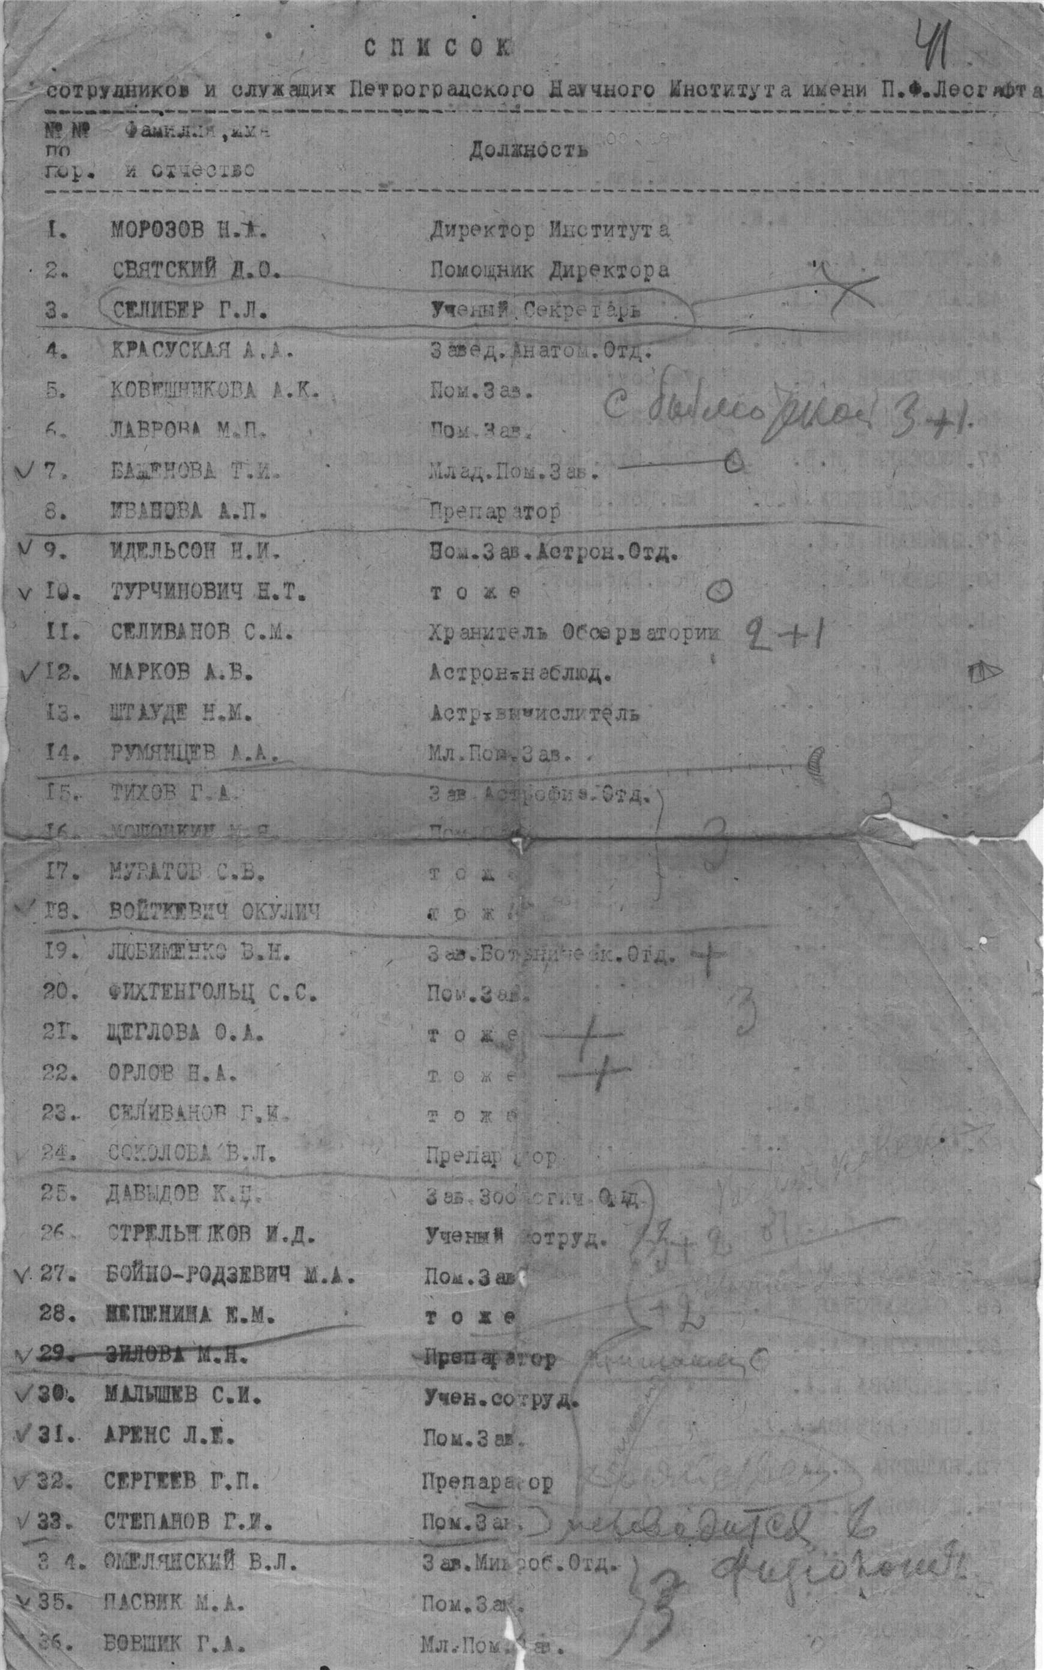 41
СПИСОК
сотрудников и служащих Петроградского Научного Института имени П.Ф.Лесгафта
№№ Фамилия, имя
по Должность
пор. и отчество
1. МОРОЗОВ Н.А. Директор Института
2. СВЯТСКИЙ Д.О. Помощник Директора
3. СЕЛИБЕР Г.Л. Ученый Секретарь
4. КРАСУСКАЯ А.А. Завед.Анатом.Отд.
5. КОВЕШНИКОВА А.К. Пом.Зав.
3+1
6. ЛАВРОВА М.П. Пом.Зав.
7. БАЖЕНОВА Т.И. Млад.Пом.Зав.
8. ИВАНОВА А.П. Препаратор
9. ИДЕЛЬСОН Н.И. Пом.Зав.Астрон.Отд.
10. ТУРЧИНОВИЧ Н.Т. тоже
11. СЕЛИВАНОВ С.М. Хранитель Обсерватории 2+1
12. МАРКОВ А.В. Астрон-наблюд.
13. ШТАУДЕ Н.М. Астр-вычислитель
14. РУМЯНЦЕВ А.А. Мл.Пом.Зав.
15. ТИХОВ Г.А. Зав.Астрофиз.Отд.
16. Пом. 3
17. МУРАТОВ С.В. тоже
18. ВОЙТКЕВИЧ ОКУЛИЧ тоже
19. ЛЮБИМЕНКО В.Н. Зав.Ботаническ.Отд. +
20. ФИХТЕНГОЛЬЦ С.С. Пом.Зав. 3
21. ЩЕГЛОВА О.А. тоже +
22. ОРЛОВ Н.А. тоже +
23. СЕЛИВАНОВ Г.И. тоже
24. СОКОЛОВА В.Л. Препаратор
25. ДАВЫДОВ К.Н. Зав.Зоологич.Отд.
26. СТРЕЛЬНИКОВ И.Д. Ученый сотруд. +2
27. БОЙНО-РОДЗЕВИЧ М.А. Пом.Зав
28. НЕПЕНИНА Е.М. тоже +2
29. ЗИЛОВА М.Н. Препаратор
30. МАЛЫШЕВ С.И. Учен.сотруд.
31. АРЕНС Л.Е. Пом.Зав.
32. СЕРГЕЕВ Г.П. Препаратор
33. СТЕПАНОВ Г.И. Пом.Зав. переводится в
34. ОМЕЛЯНСКИЙ В.Л. Зав.Микроб.Отд.
3
35. ПАСВИК М.А. Пом.Зав.
36. БОВШИК Г.А. Мл.Пом.Зав.